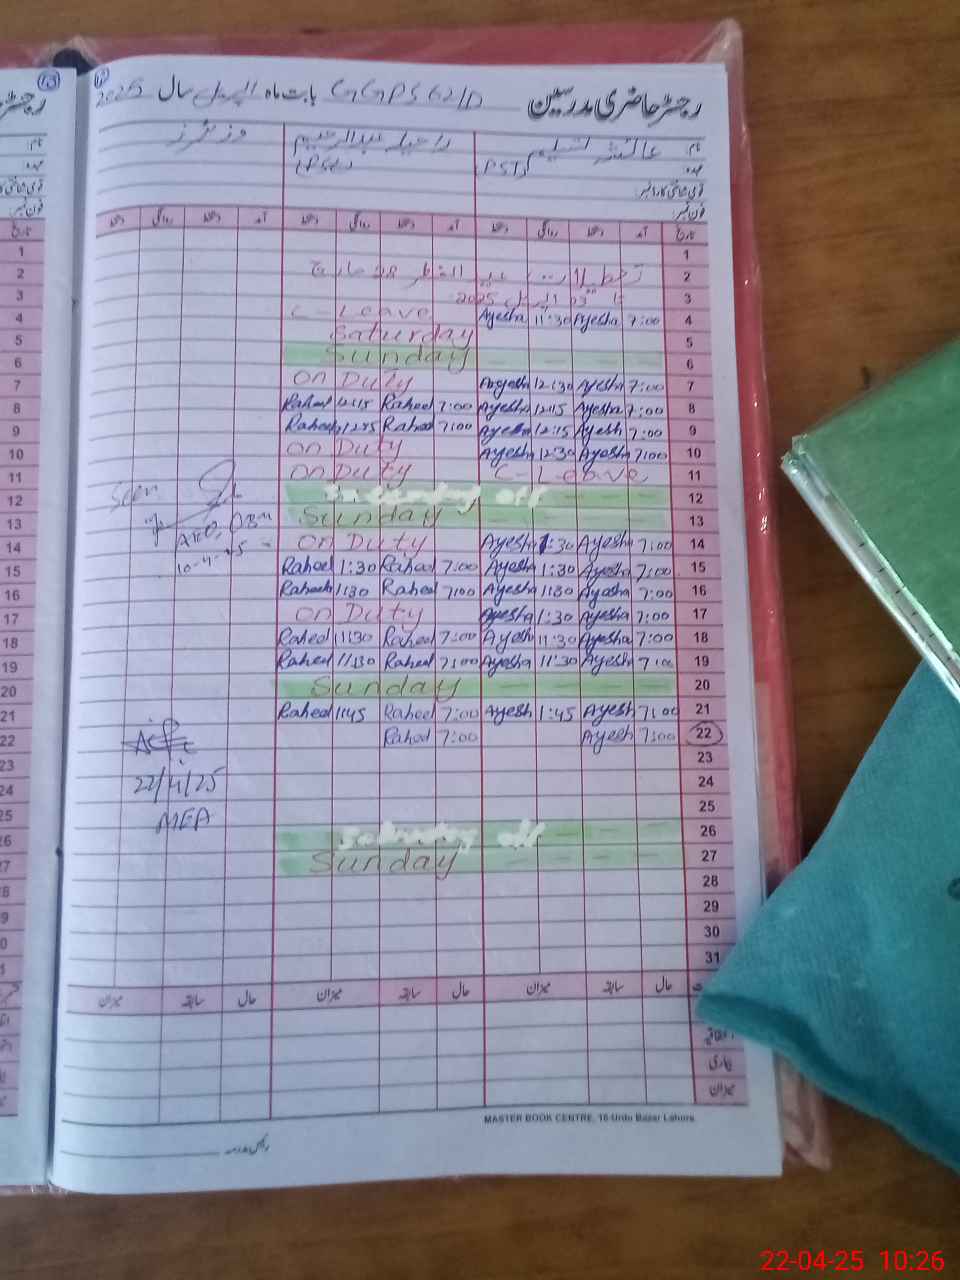 رجسٹر حاضری مدرسین GGPS 62/D بابت ماہ اپریل سال 2025
نام عائشہ تسلیم راحیلہ عبدالرحیم وزیٹرز
عہدہ PST
قومی شناختی کارڈ نمبر
فون نمبر
تاریخ آمد دستخط روانگی دستخط آمد دستخط روانگی دستخط آمد دستخط روانگی دستخط
1
2 تعطیلات عید الفطر 28 مارچ
3 تا 03 اپریل 2025
C-Leave Ayesha 11:30 Ayesha 7:00 4
Saturday 5
Sunday 6
On Duty Ayesha 12:30 Ayesha 7:00 7
Raheel 12:15 Raheel 7:00 Ayesha 12:15 Ayesha 7:00 8
Raheel 12:15 Raheel 7:00 Ayesha 12:15 Ayesh 7:00 9
On Duty Ayesha 12:30 Ayesha 7:00 10
On Duty C-Leave 11
Saturday off 12
Sunday 13
On Duty Ayesha 1:30 Ayesha 7:00 14
Raheel 1:30 Raheel 7:00 Ayesha 1:30 Ayesha 7:00 15
Raheel 1:30 Raheel 7:00 Ayesha 1:30 Ayesha 7:00 16
On Duty Ayesha 1:30 Ayesha 7:00 17
Raheel 11:30 Raheel 7:00 Ayesh 11:30 Ayesha 7:00 18
Raheel 11:30 Raheel 7:00 Ayesha 11:30 Ayesh 7:00 19
Sunday 20
Raheel 1:45 Raheel 7:00 Ayesh 1:45 Ayesh 7:00 21
Raheel 7:00 Ayesh 7:00 22
23
24
25
Saturday off 26
Sunday 27
28
29
30
31
Seen
AEO,
10-4-25
22/4/25
MEA
حال سابقہ میزان حال سابقہ میزان حال سابقہ میزان
اتفاقیہ
بیماری
میزان
MASTER BOOK CENTRE, 16-Urdu Bazar Lahore.
رئیس مدرسہ
22-04-25 10:26